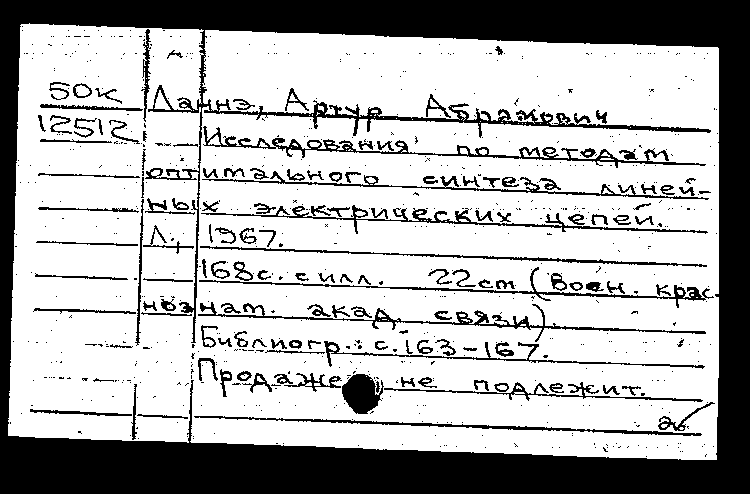 50К Ланнэ, Артур Абрамович
12512 Исследования по методам
оптимального синтеза линей-
ных электрических цепей.
Л., 1967.
168с. с илл. 22cm (Воен. крас-
нознат. акад. связи).
Библиогр.: с.163-167.
Продаже не подлежит.